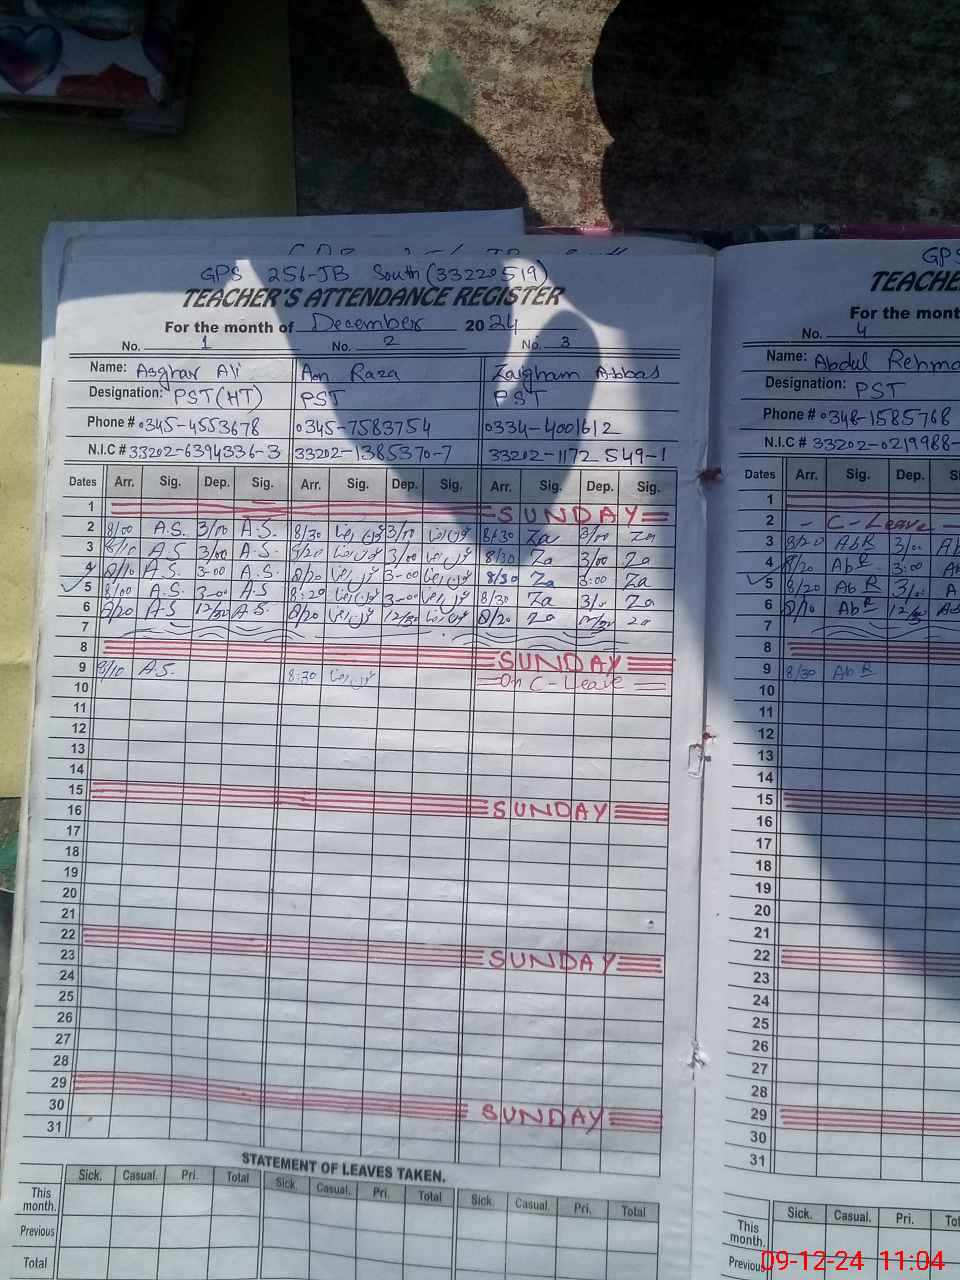 GPS 256-JB South (33220519)
TEACHER'S ATTENDANCE REGISTER
For the month of December 2024
No. 1 No. 2 No. 3
Name: Asghar Ali Aon Raza Zaigham Abbas
Designation: PST(HT) PST PST
Phone # 0345-4553678 0345-7583754 0334-4001612
N.I.C # 33202-6394336-3 33202-1385370-7 33202-1172549-1
Dates Arr. Sig. Dep. Sig. Arr. Sig. Dep. Sig. Arr. Sig. Dep. Sig.
1 SUNDAY
2 8/00 A.S. 3/00 A.S. 8/30 3/00 8/30 Za 3/00 Za
3 8/10 A.S 3/00 A.S. 8/20 3/00 8/30 Za 3/00 Za
4 8/10 A.S. 3-00 A.S. 8/20 3-00 8/30 Za 3:00 Za
5 8/00 A.S. 3-00 A.S 8:20 3-00 8/30 Za 3/00 Za
6 8/20 A.S 12/30 A.S. 8/20 12/30 8/20 Za 12/30 Za
7
8 SUNDAY
9 8/10 A.S. 8:30 On C-Leave
10
11
12
13
14
15 SUNDAY
16
17
18
19
20
21
22 SUNDAY
23
24
25
26
27
28
29 SUNDAY
30
31
STATEMENT OF LEAVES TAKEN.
Sick. Casual. Pri. Total Sick. Casual. Pri. Total Sick. Casual. Pri. Total
This month.
Previous
Total
GPS
TEACHE
For the mont
No. 4
Name: Abdul Rehma
Designation: PST
Phone # 0348-1585768
N.I.C # 33202-0219988-
Dates Arr. Sig. Dep. S
1
2 - C-Leave -
3 8/20 AbR 3/00 Ab
4 8/20 AbR 3:00 Ab
5 8/20 AbR 3/00 A
6 8/10 AbR 12/30 Ab
7
8
9 8/30 AbR
10
11
12
13
14
15
16
17
18
19
20
21
22
23
24
25
26
27
28
29
30
31
Sick. Casual. Pri. Tot
This month.
Previous
09-12-24 11:04